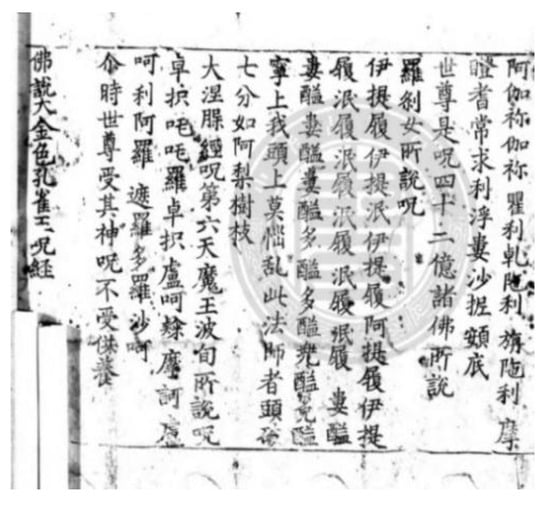 阿伽祢伽祢 瞿利乹陁利 旃陁利 摩
瞪者常求利浮婁沙捉頞底
世尊是呪四十二億諸佛所說
羅刹女所說呪
伊提履伊提泯伊提履阿提履伊提
履泯履泯履泯履泯履泯履 婁醯
婁醯婁醯婁醯多醯多醯兠醯兠醯
寧上我頭上莫惱乱此法師者頭破
七分如阿梨樹枝
大涅槃經呪第六天魔王波旬所說呪
卓抧咤咤羅卓抧盧呵 摩訶盧
呵利阿羅 遮羅多羅沙呵
尒時世尊受其神呪不受供養
佛說大金色孔雀王呪経